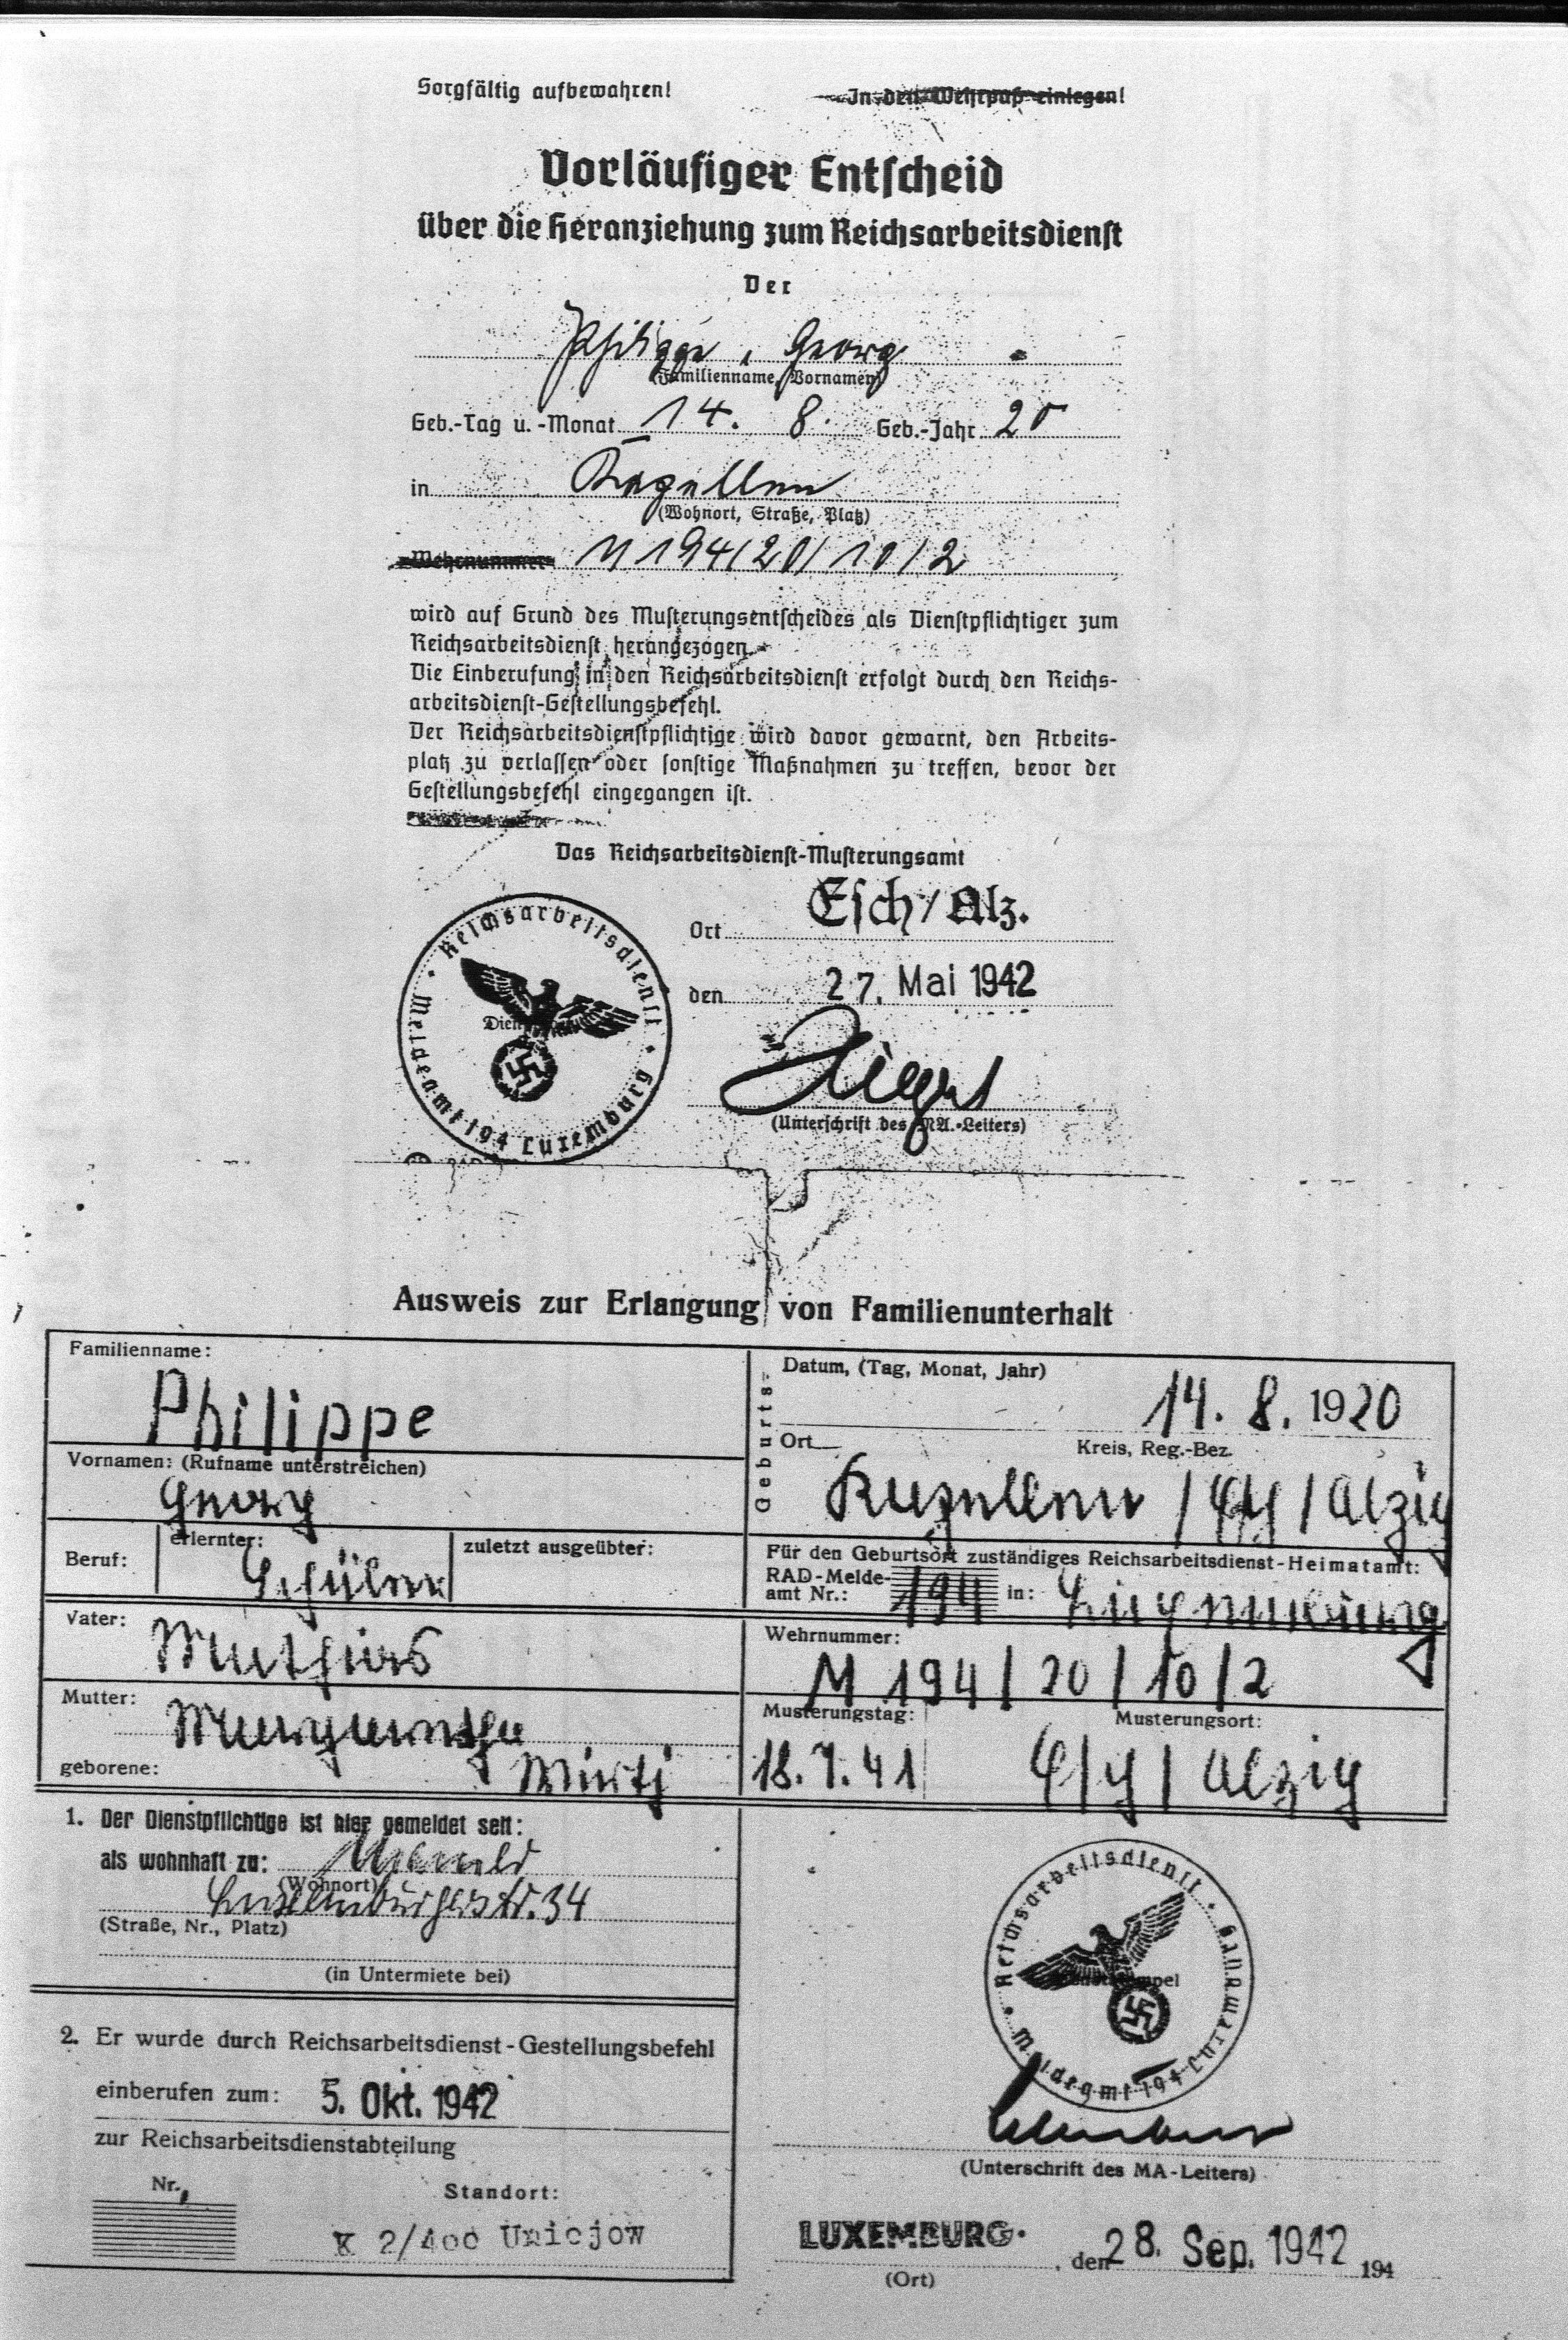 Sorgfältig aufbewahren!
In den Wehrpaß einlegen!
Vorläufiger Entscheid
über die Heranziehung zum Reichsarbeitsdienst
Der
Philippe, Georg
(Familienname, Vornamen)
Geb.-Tag u. -Monat 14. 8. Geb.-Jahr 20
in
(Wohnort, Straße, Platz)
Wehrnummer M 194/20/10/2
wird auf Grund des Musterungsentscheides als Dienstpflichtiger zum
Reichsarbeitsdienst herangezogen.
Die Einberufung in den Reichsarbeitsdienst erfolgt durch den Reichs-
arbeitsdienst-Gestellungsbefehl.
Der Reichsarbeitsdienstpflichtige wird davor gewarnt, den Arbeits-
platz zu verlassen oder sonstige Maßnahmen zu treffen, bevor der
Gestellungsbefehl eingegangen ist.
Das Reichsarbeitsdienst-Musterungsamt
Ort Esch/Alz.
den 27. Mai 1942
Reichsarbeitsdienst
Meldeamt 194 Luxemburg
(Unterschrift des MA.-Leiters)
Ausweis zur Erlangung von Familienunterhalt
Familienname:
Philippe
Geburts-
Datum, (Tag, Monat, Jahr)
14. 8. 1920
Vornamen: (Rufname unterstreichen)
Georg
Ort
Kreis, Reg.-Bez.
/ Esch / Alzig
Beruf:
erlernter:
Schüler
zuletzt ausgeübter:
Für den Geburtsort zuständiges Reichsarbeitsdienst-Heimatamt:
RAD-Melde-
amt Nr.: 194 in: Luxemburg
Vater:
Mathias
Wehrnummer:
M 194 / 20 / 10 / 2
Mutter:
Margaretha
geborene:
Musterungstag:
18.7.41
Musterungsort:
Esch / Alzig
1. Der Dienstpflichtige ist hier gemeldet seit:
als wohnhaft zu:
(Wohnort)
Luxemburgerstr. 34
(Straße, Nr., Platz)
(in Untermiete bei)
2. Er wurde durch Reichsarbeitsdienst-Gestellungsbefehl
einberufen zum: 5. Okt. 1942
zur Reichsarbeitsdienstabteilung
Nr.
Standort:
K 2/400 Uniejow
Reichsarbeitsdienst
Meldeamt 194 Luxemburg
(Unterschrift des MA-Leiters)
LUXEMBURG, den 28. Sep. 1942 194
(Ort)